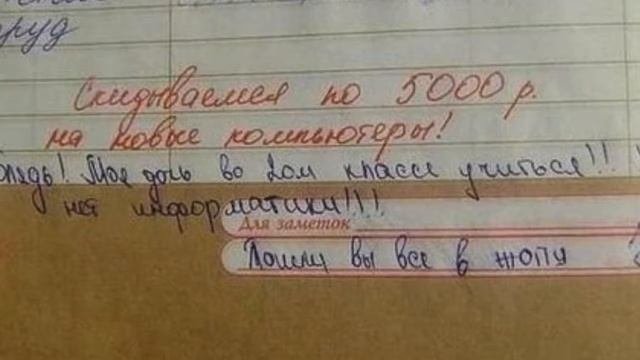 руд
Скидываемся по 5000 р.
на новые компьютеры!
Моя дочь во 2ом классе учиться!!
нет информатики!!!
Для заметок
Пошли вы все в жопу